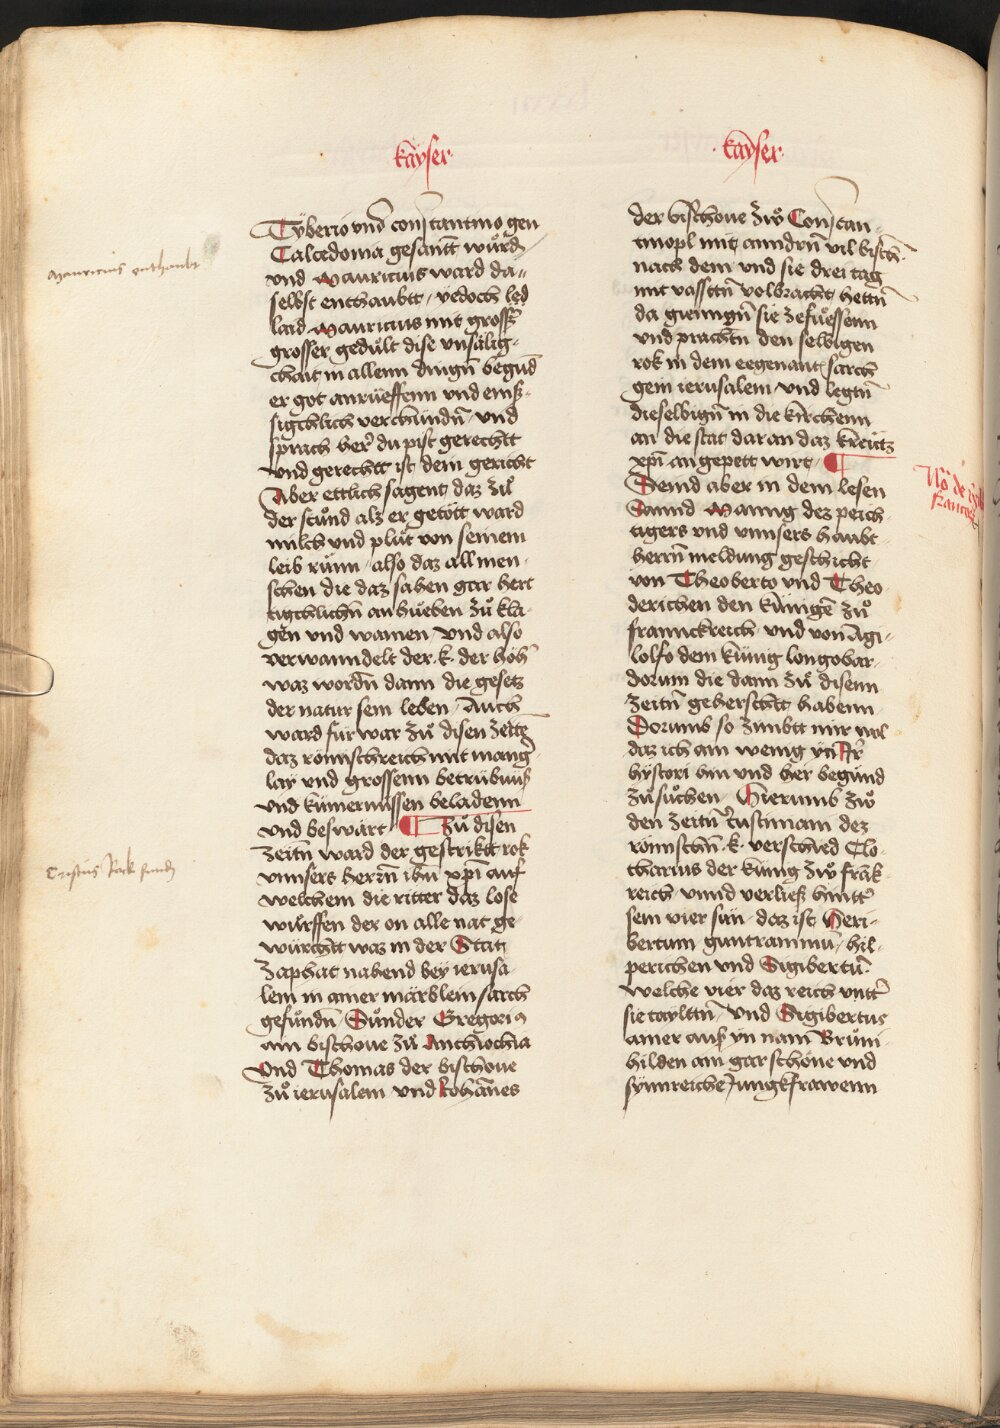 kayser
Tyberio vnd constantino gen
Calcedonia gesantt wurd
vnd Mauricius ward da-
selbst enthaubtt / yedoch led
laid Mauricius mit grosser
grosser gedult dise vnsälig-
chait in allenn dingn begund
er got anrüeffenn vnd einß-
sigchlich verchündn vnd
sprach her du pist gerechtt
vnd gerechtt ist dein gericht
Aber ettlich sagent daz zů
der stůnd alz er getött ward
milch vnd plůt von seinem
leib runn / also daz all men-
schen die daz sahen gar hert
tigchlichn an hueben zů kla-
gen vnd wainen / vnd also
verwanndelt der .k. der höh
waz wordn dann die gesetz
der natur sein leben / Auch
ward für war zů disen zeitn
daz römischreich mit manger
lay vnd grossenn betrübnuß
vnd kümernüssen beladenn
vnd beswärt / Zů disen
zeitn ward der gestriktt rok
vnnsers herrn ihu xpi auf
welchem die ritter daz lose
würffen der on alle nat ge-
würchtt waz in der Stat
Zaphat nahend bey ierusa-
lem in ainer märblein sarch
gefundn / Sunder Gregori9
ain bischoue zů Anthiochia
vnd Thomas der bischoue
zů ierusalem vnd Iohanes
kayser
der bischoue zů Constan-
tinopl mit anndrn vil bisch
nach dem vnd sie drei tag
mit vassttn volbracht hettn
da giengn sie ze fuessenn
vnd prachtn den selbigen
rok in dem eegenant sarch
gein ierusalem vnd legtn
dieselbign in die kirchenn
an die stat dar an daz kreutz
xpi an gepett wirt /
Seind aber in dem lesen
Sannd Mannig dez peich-
tigers vnd vnnsers haubt-
herrn meldung geschicht
von Theoberto vnd Theo-
derichen den künige zů
frannckreich vnd von Agi-
lolfo dem künig longobar-
dorum die dann zů disenn
zeitn geherschtt habenn
Dorumb so zimbtt mir wol
daz ich ain wenig yn Irer
hystori hin vnd her begund
zů suchen / Hierumb zů
den zeitn iustiniani dez
römischn .k. verschied Clo-
tharius der künig zů frak-
reich vnnd verließ hintter
sein vier sün / daz ist Heri-
bertum guntrammu / hil-
perichen vnd Sigibertu
welche vier daz reich vntter
sie taylttn / vnd Sigibertus
ainer auß yn nam Bruni-
hilden ain gar schöne vnd
synnreiche Jungkfrawenn
Mauricius enthaubt
Cristus Rock fund
No de
francor